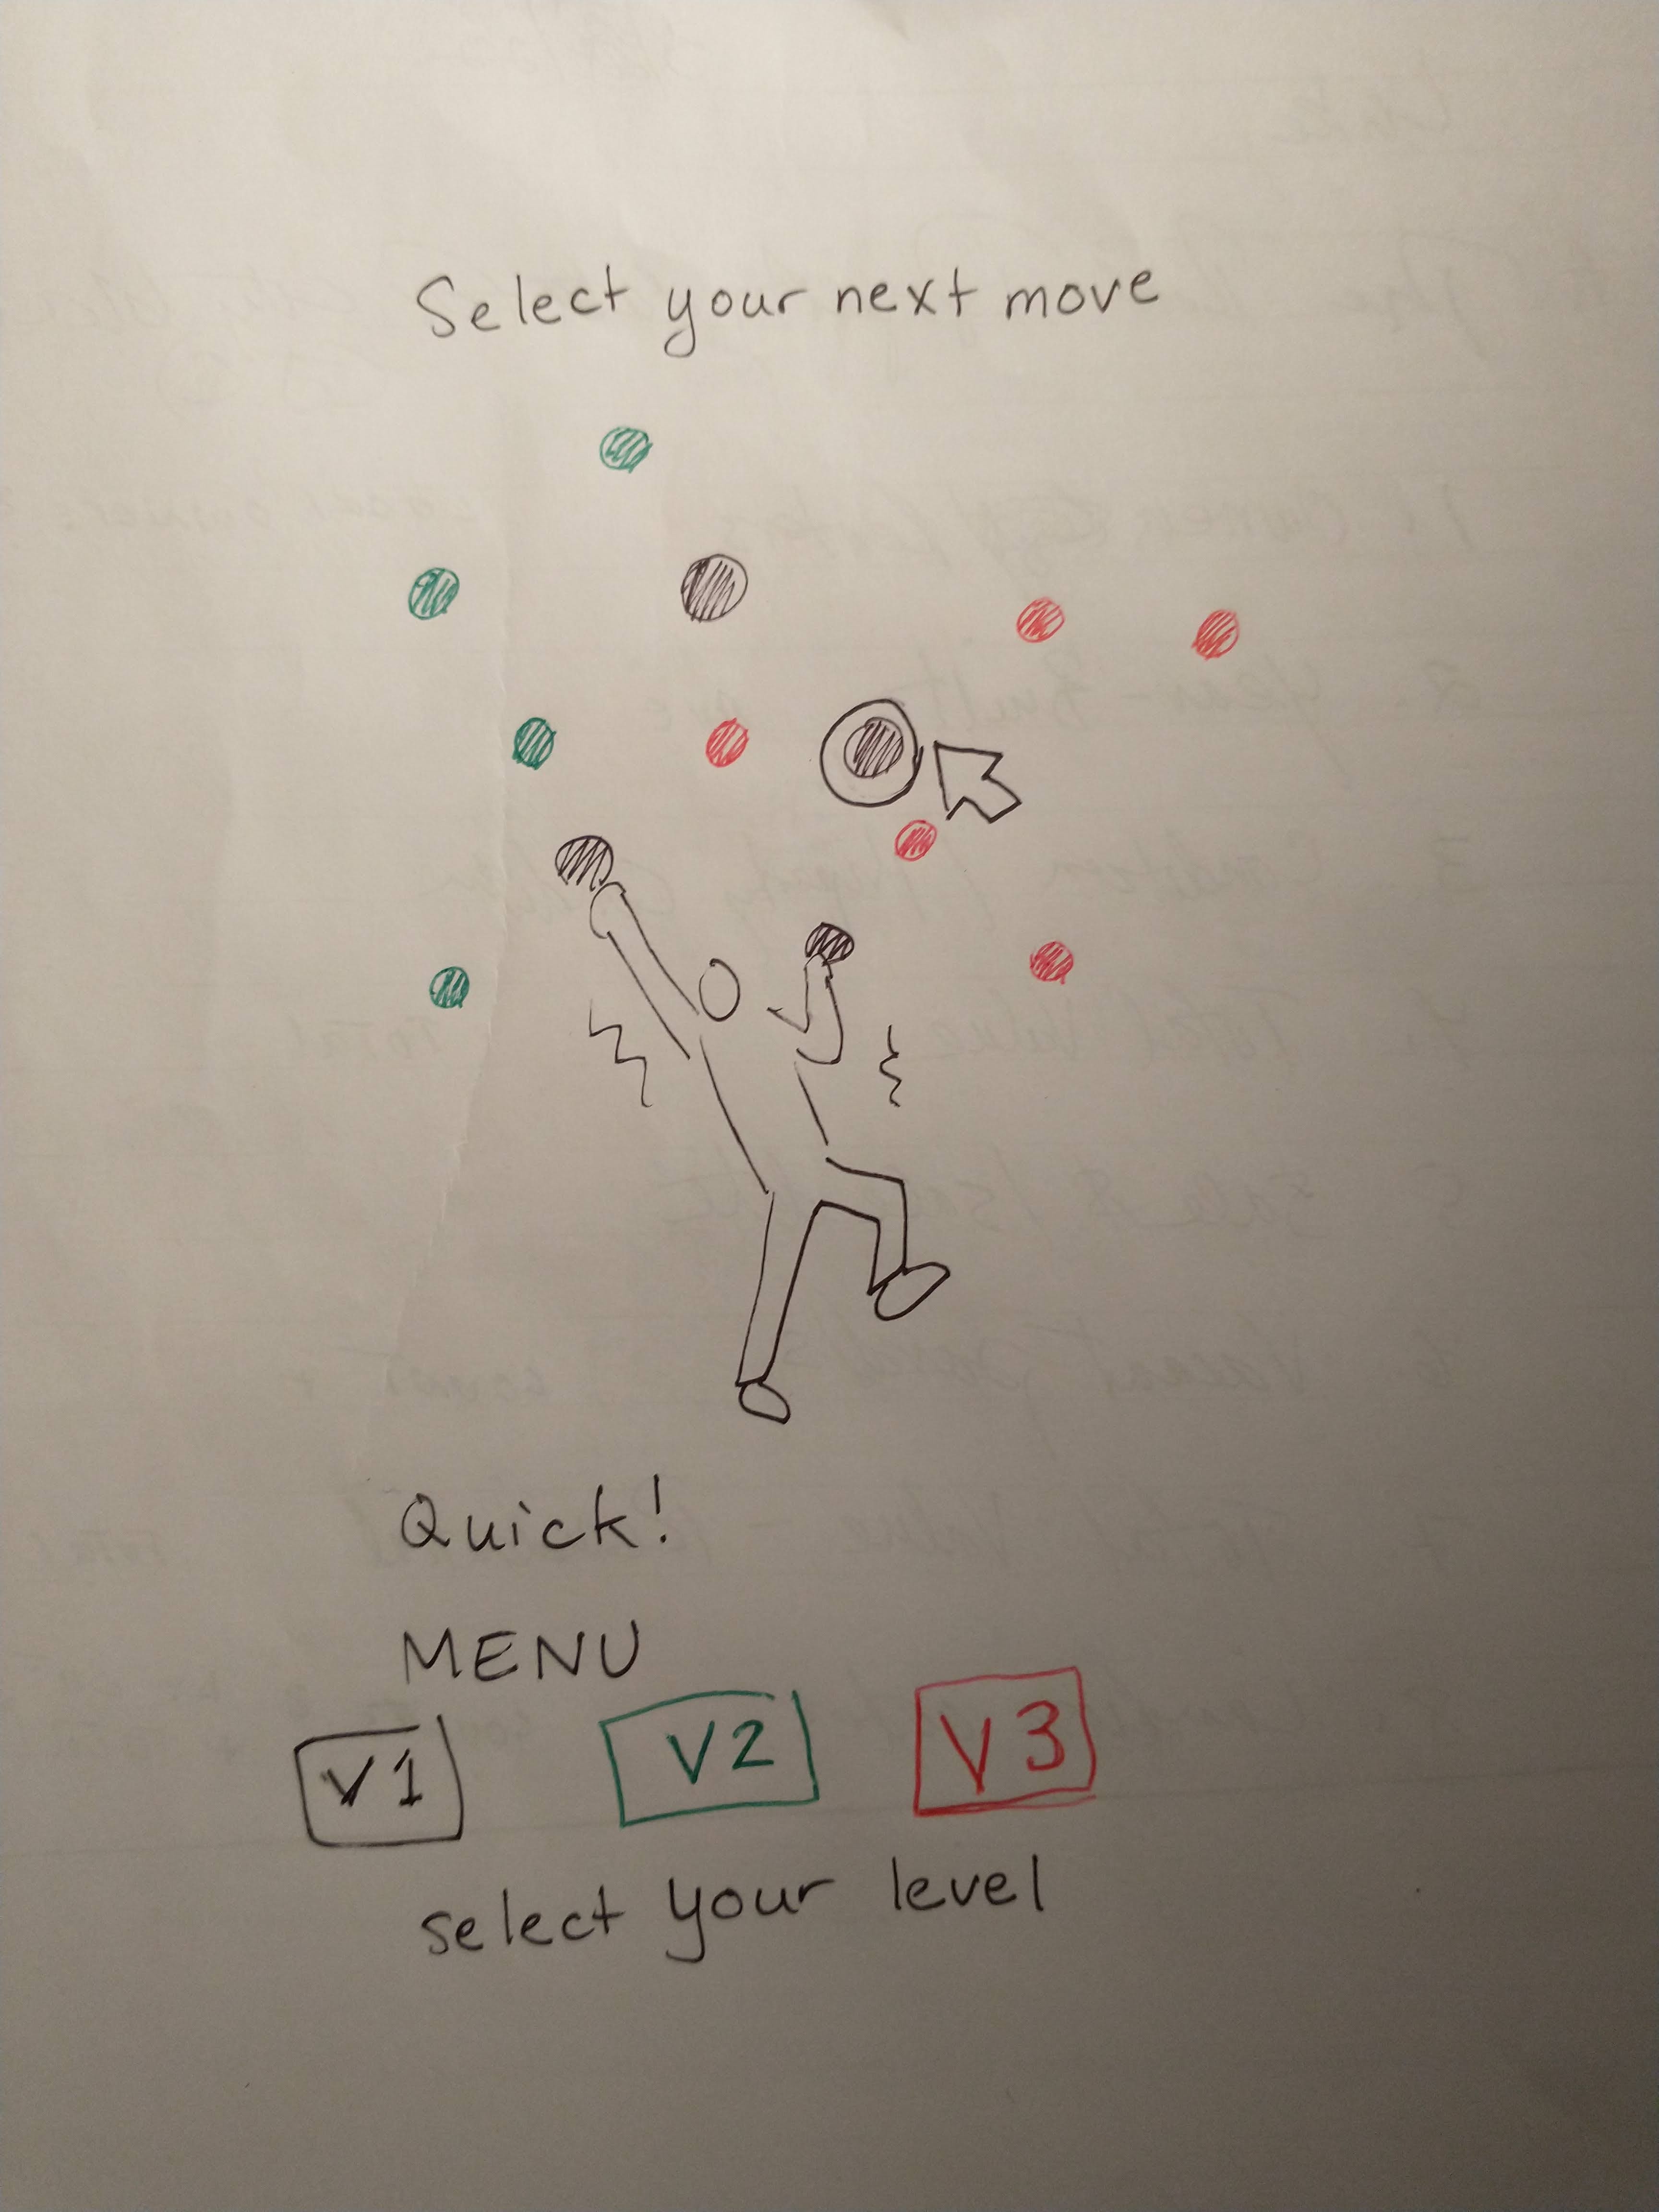 Select your next move
Quick!
MENU
V1 V2 V3
select your level